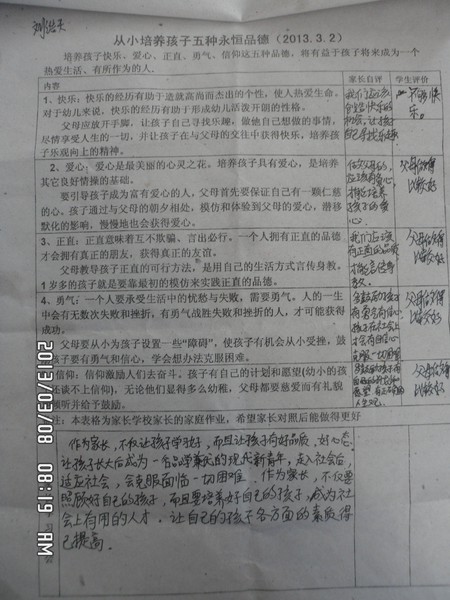 从小培养孩子五种永恒品德（2013.3.2）
培养孩子快乐、爱心、正直、勇气、信仰这五种品德，将有益于孩子将来成为一个
热爱生活、有所作为的人。
内容 家长自评 学生评价
1、快乐：快乐的经历有助于造就高尚而杰出的个性，使人热爱生命。
对于幼儿来说，快乐的经历有助于形成幼儿活泼开朗的性格。
父母应放开手脚，让孩子自己寻找乐趣，做他自己想做的事情，
尽情享受人生的一切，并让孩子在与父母的交往中获得快乐，培养孩
子乐观向上的精神。
2、爱心：爱心是最美丽的心灵之花。培养孩子具有爱心，是培养
其它良好情操的基础。
要引导孩子成为富有爱心的人，父母首先要保证自己有一颗仁慈
的心。孩子通过与父母的朝夕相处，模仿和体验到父母的爱心，潜移
默化的影响，慢慢地也会获得爱心。
3、正直：正直意味着互不欺骗、言出必行。一个人拥有正直的品德
才会拥有真正的朋友，获得真正的友谊。
父母教导孩子正直的可行方法，是用自己的生活方式言传身教。
1岁多的孩子就是要靠最初的模仿来实践正直的品德。
4、勇气：一个人要承受生活中的忧愁与失败，需要勇气。人的一生
中会有无数次失败和挫折，有勇气战胜失败和挫折的人，才可能获得
成功。
父母要从小为孩子设置一些“障碍”，使孩子有机会从小受挫，鼓
孩子要有勇气和信心，学会想办法克服困难。
信仰：信仰激励人们去奋斗。孩子有自己的计划和愿望(幼小的孩
还谈不上信仰)，无论他们显得多么幼稚，父母都要慈爱而有礼貌
倾听并给予鼓励。
注：本表格为家长学校家长的家庭作业，希望家长对照后能做得更好
作为家长，不仅让孩子学好，而且让孩子有好品质，好心态。
让孩子长大后成为一名品学兼优的现代新青年，走入社会后，
适应社会，会克服面临一切困难。作为家长，不仅要
照顾好自己的孩子，而且要培养好自己的孩子，成为社
会上有用的人才。让自己的孩子各方面的素质得
已提高。
2013/03/08 08:19 AM